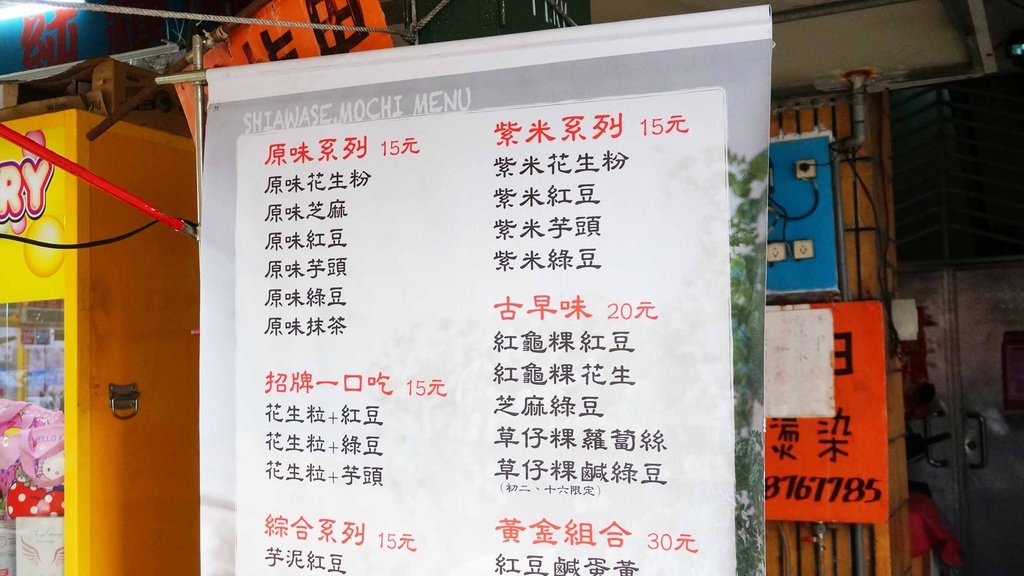 SHIAWASE.MOCHI MENU
原味系列 15元
原味花生粉
原味芝麻
原味紅豆
原味芋頭
原味綠豆
原味抹茶
招牌一口吃 15元
花生粒+紅豆
花生粒+綠豆
花生粒+芋頭
綜合系列 15元
芋泥紅豆
紫米系列 15元
紫米花生粉
紫米紅豆
紫米芋頭
紫米綠豆
古早味 20元
紅龜粿紅豆
紅龜粿花生
芝麻綠豆
草仔粿蘿蔔絲
草仔粿鹹綠豆
(初二、十六限定)
黃金組合 30元
紅豆鹹蛋黃
RY
燙染
8767785